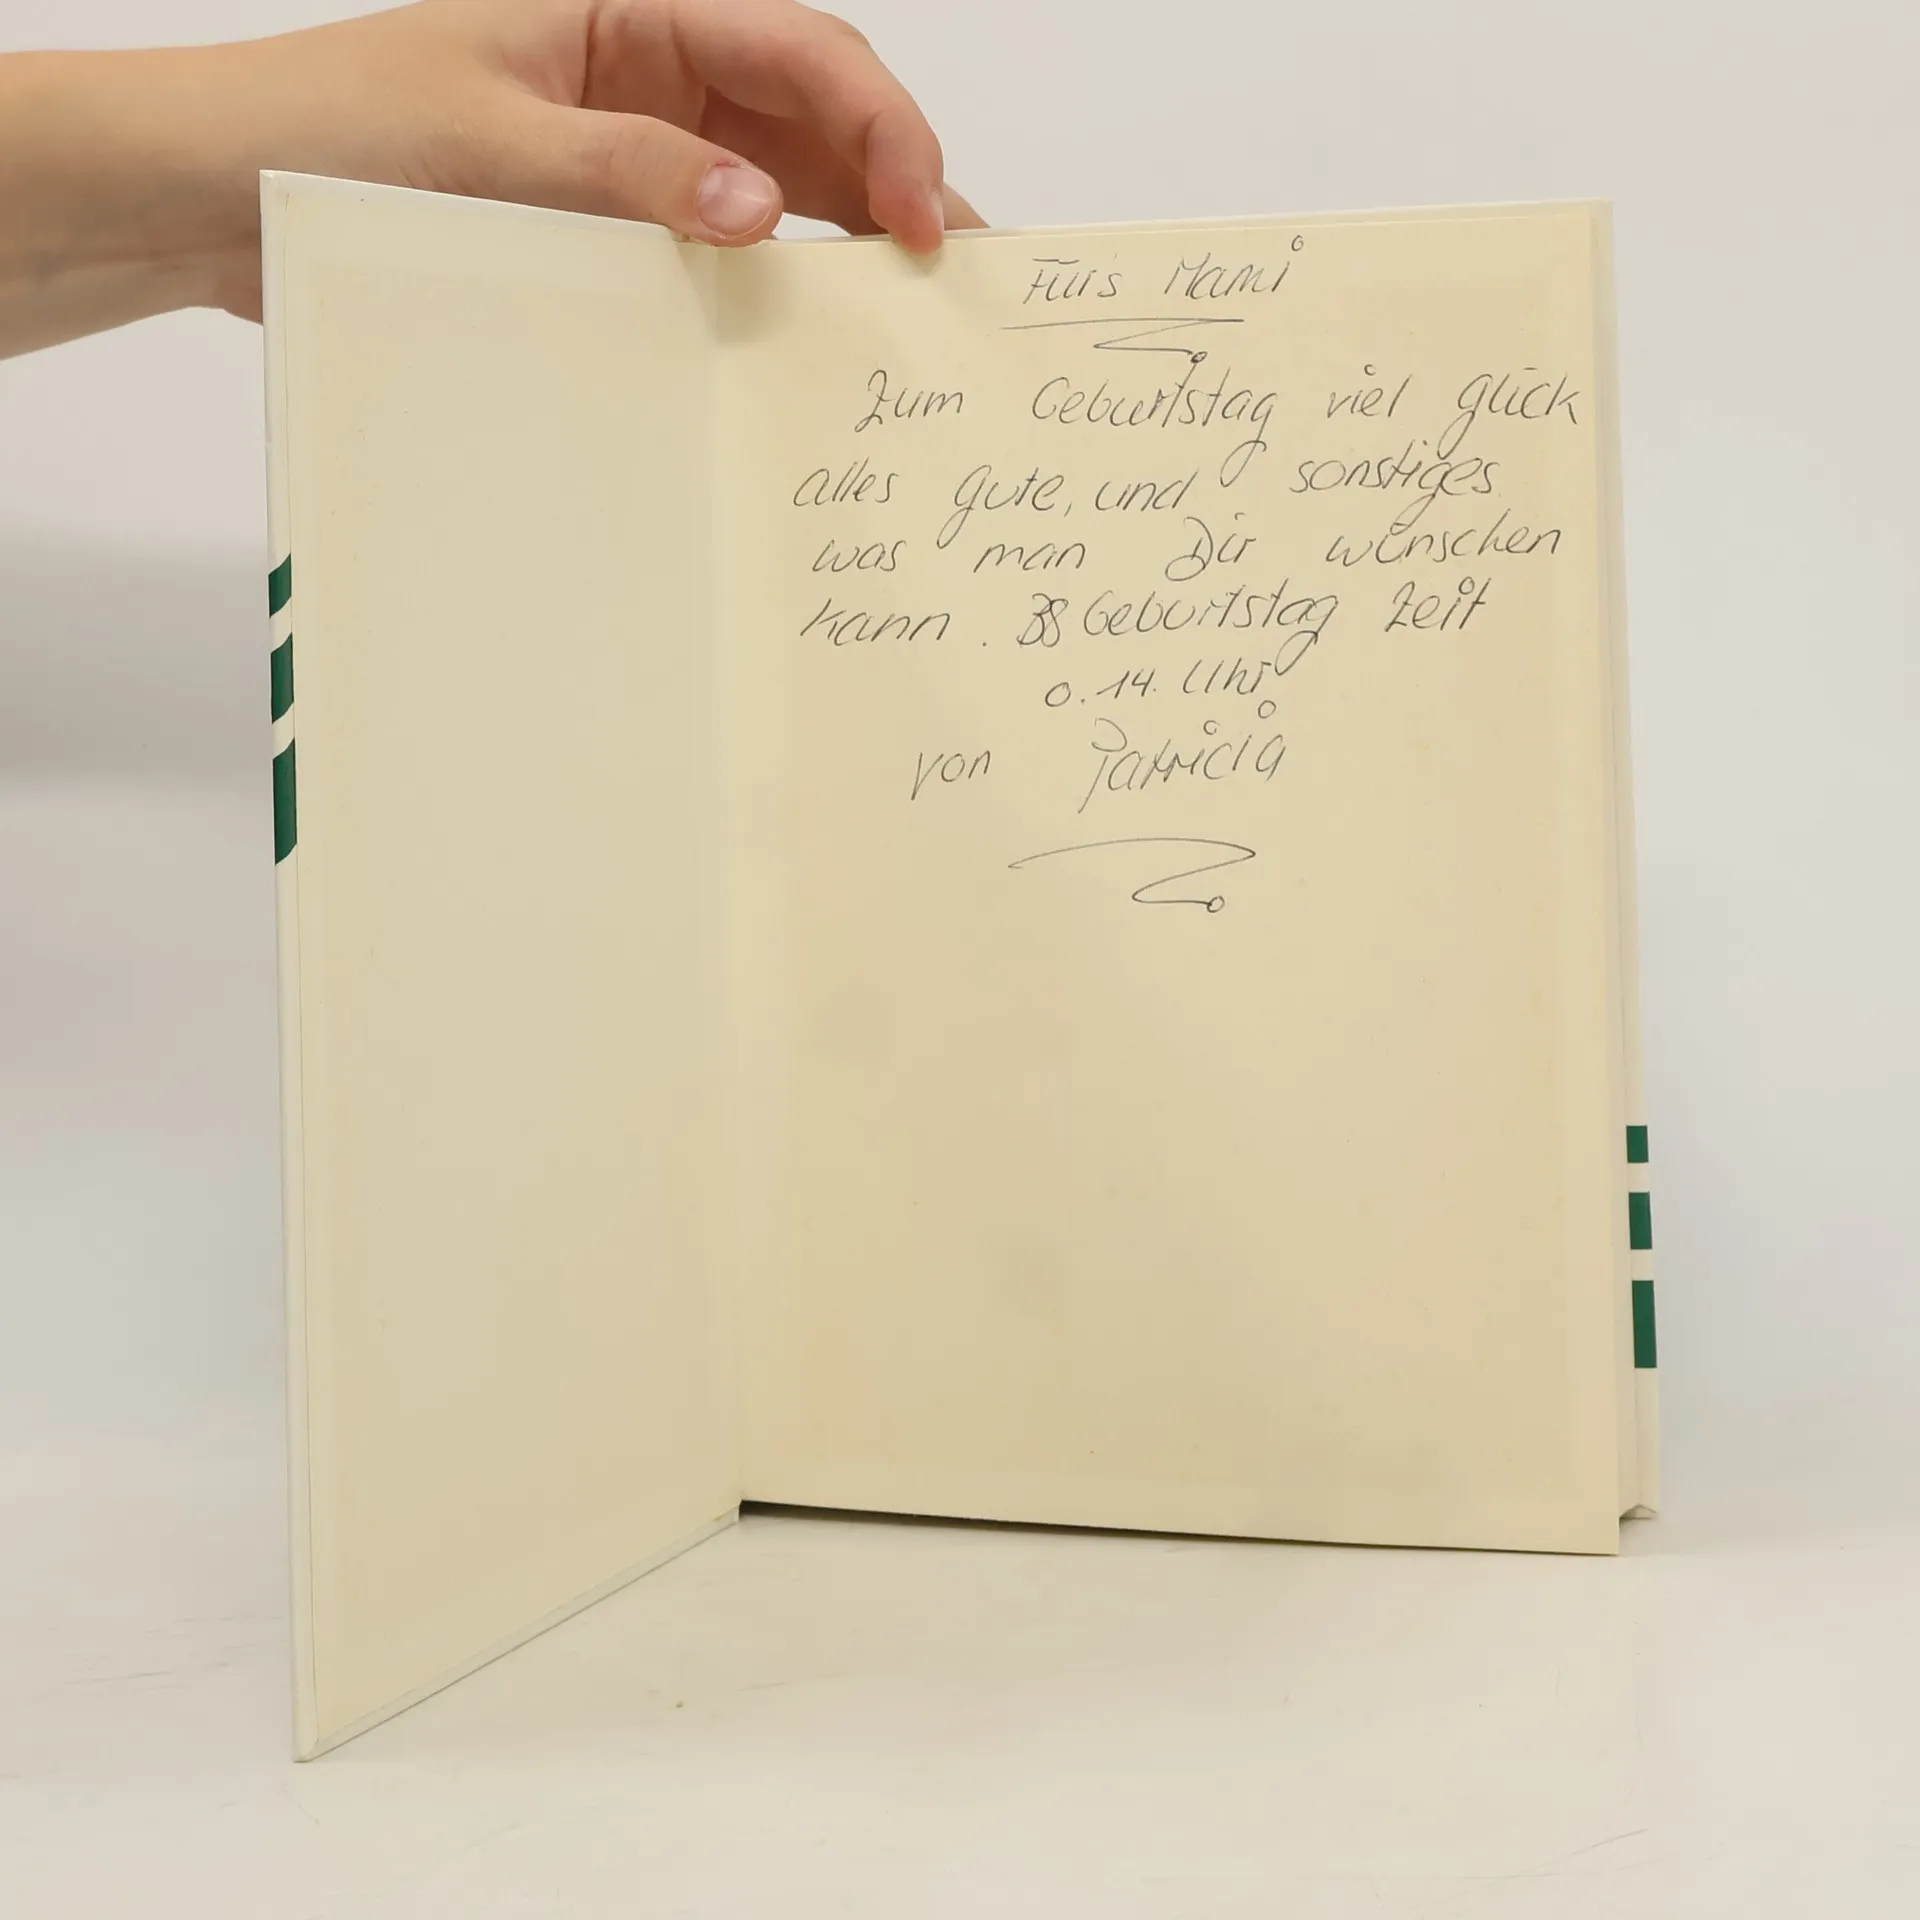 Für's Mami
Zum Geburtstag viel glück
alles gute, und sonstiges
was man Dir wünschen
kann. Geburtstag Zeit
0.14. Uhr
von Patricia